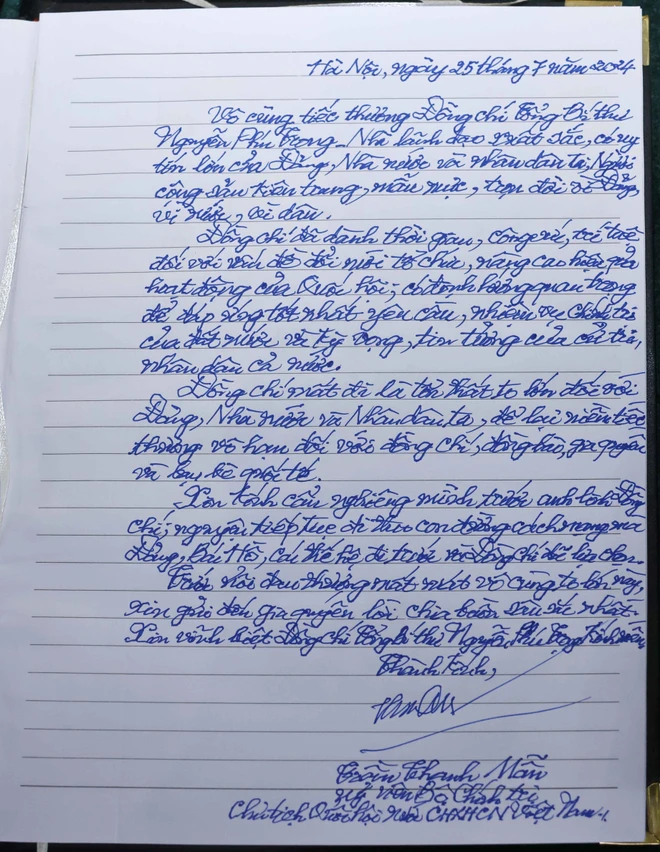 Hà Nội, ngày 25 tháng 7 năm 2024
Vô cùng tiếc thương Đồng chí Tổng Bí thư
Nguyễn Phú Trọng - Nhà lãnh đạo xuất sắc, có uy
tín lớn của Đảng, Nhà nước và nhân dân ta; Người
cộng sản kiên trung, mẫu mực, trọn đời vì Đảng,
vì nước, vì dân.
Đồng chí đã dành thời gian, công sức, trí tuệ
đối với vấn đề đổi mới tổ chức, nâng cao hiệu quả
hoạt động của Quốc hội; có định hướng quan trọng
để đáp ứng tốt nhất yêu cầu, nhiệm vụ chính trị
của đất nước và kỳ vọng, tin tưởng của cử tri,
nhân dân cả nước.
Đồng chí mất đi là tổn thất to lớn đối với
Đảng, Nhà nước và Nhân dân ta, để lại niềm tiếc
thương vô hạn đối với đồng chí, đồng bào, gia quyến
và bạn bè quốc tế.
Xin thành kính nghiêng mình trước anh linh Đồng
chí; nguyện tiếp tục đi theo con đường cách mạng mà
Đảng, Bác Hồ, các thế hệ đi trước và Đồng chí đã lựa chọn.
Trước nỗi đau thương mất mát vô cùng to lớn này,
xin gửi đến gia quyến lời chia buồn sâu sắc nhất.
Xin vĩnh biệt Đồng chí Tổng Bí thư Nguyễn Phú Trọng kính mến
Thành kính,
Trần Thanh Mẫn
Uỷ viên Bộ Chính trị
Chủ tịch Quốc hội nước CHXHCN Việt Nam